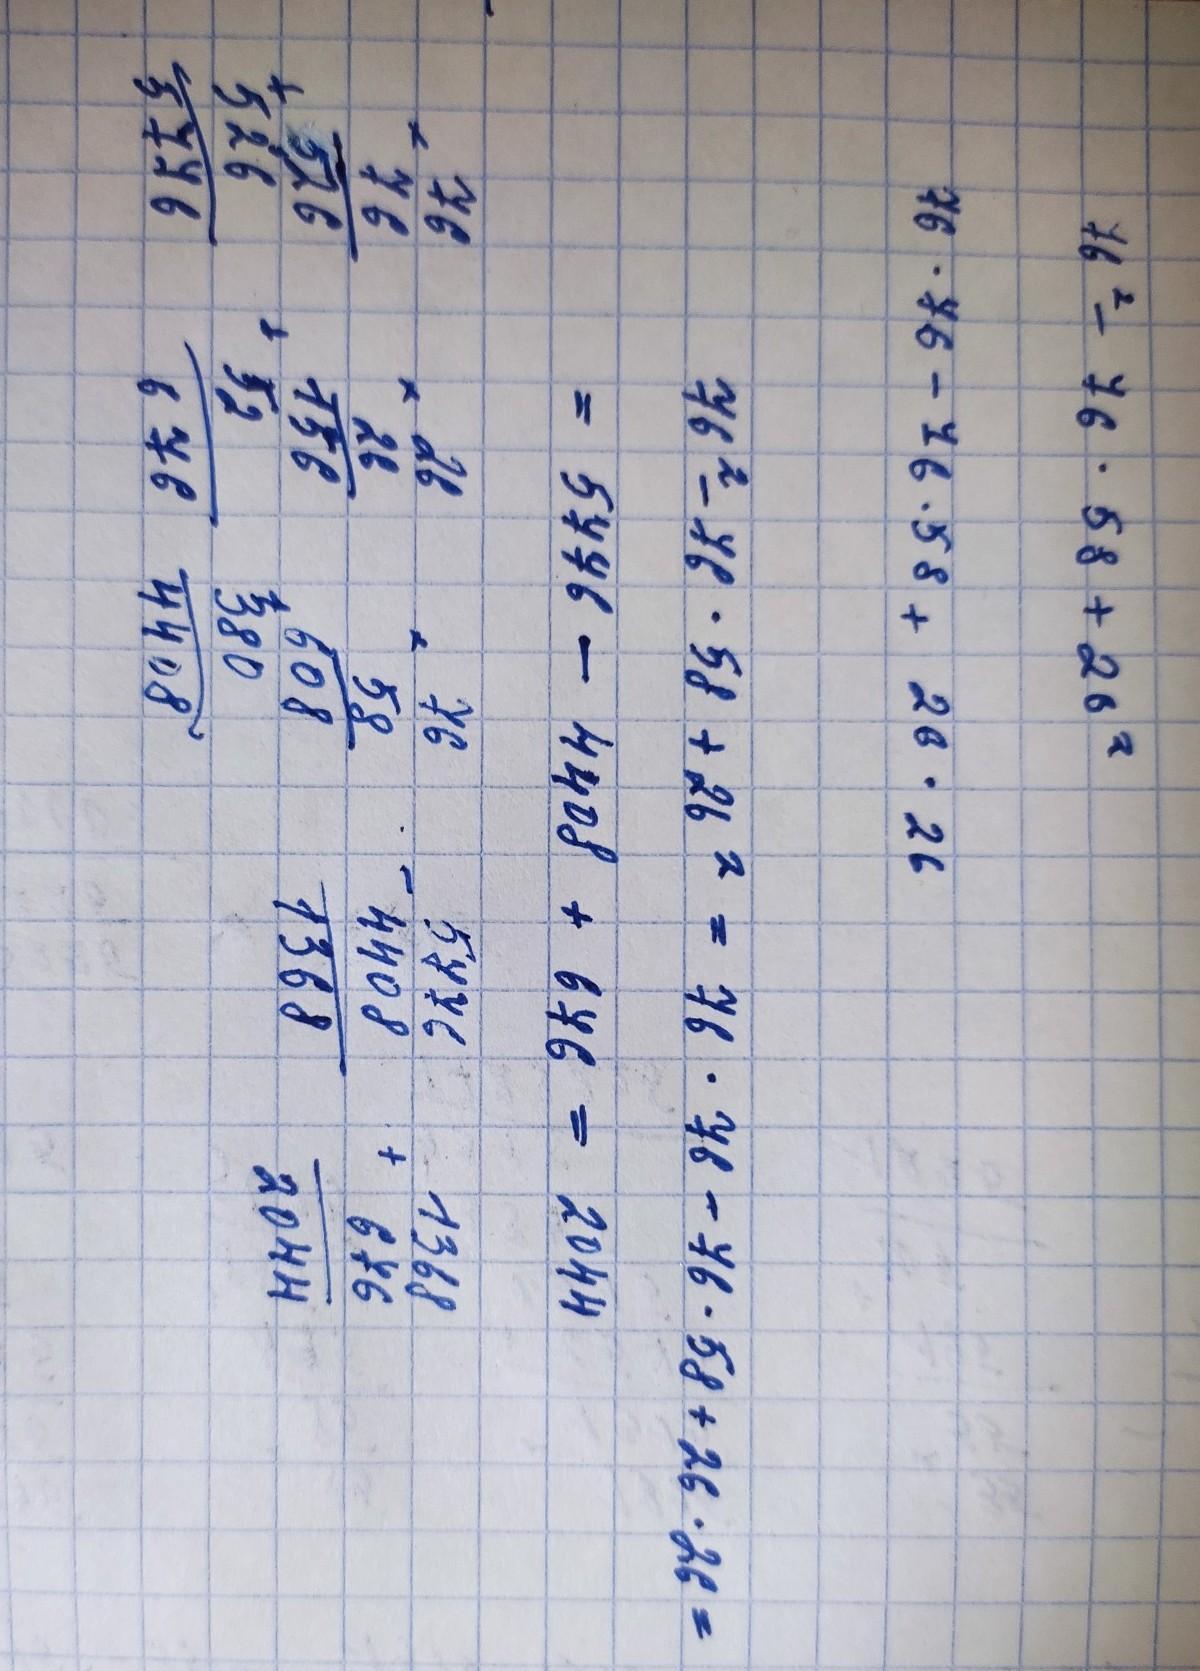 76² − 76 · 58 + 26²
76 · 76 − 76 · 58 + 26 · 26
76² − 76 · 58 + 26² = 76 · 76 − 76 · 58 + 26 · 26 =
= 5776 − 4408 + 676 = 2044
76
× 76
526
+ 526
5776
26
× 26
156
+ 52
676
76
× 58
608
+ 380
4408
5776
− 4408
1368
1368
+ 676
2044